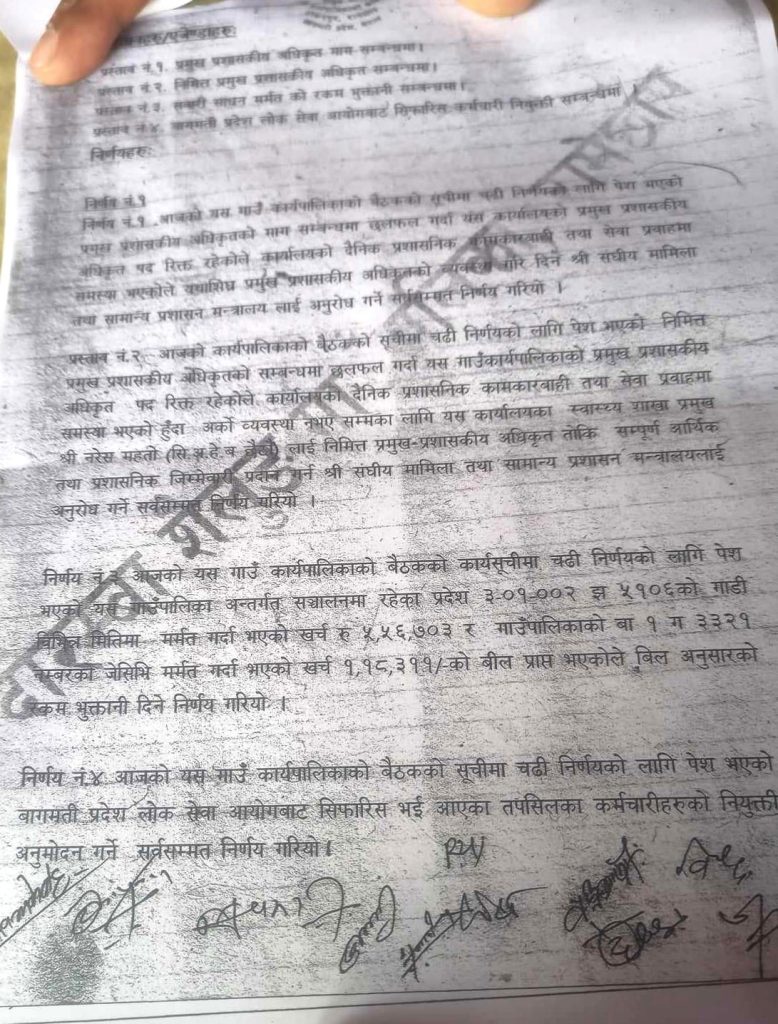 प्रस्ताव नं.१. प्रमुख प्रशासकीय अधिकृत माग सम्बन्धमा।
प्रस्ताव नं.२. निमित्त प्रमुख प्रशासकीय अधिकृत सम्बन्धमा।
प्रस्ताव नं.३. सवारी साधन मर्मत को रकम भुक्तानी सम्बन्धमा।
प्रस्ताव नं.४. बागमती प्रदेश लोक सेवा आयोगबाट सिफारिस कर्मचारी नियुक्ती सम्बन्धमा ।
निर्णयहरुः
निर्णय नं.१
निर्णय नं.१ आजको यस गाउँ कार्यपालिकाको बैठकको सूचीमा चढी निर्णयको लागि पेश भएको
प्रमुख प्रशासकीय अधिकृतको माग सम्बन्धमा छलफल गर्दा यस कार्यालयको प्रमुख प्रशासकीय
अधिकृत पद रिक्त रहेकोले कार्यालयको दैनिक प्रशासनिक कामकारवाही तथा सेवा प्रवाहमा
समस्या भएकोले यथाशिघ्र प्रमुख प्रशासकीय अधिकृतको व्यवस्था गरि दिने श्री संघीय मामिला
तथा सामान्य प्रशासन मन्त्रालय लाई अनुरोध गर्ने सर्वसम्मत निर्णय गरियो ।
प्रस्ताव नं.२. आजको कार्यपालिकाको बैठकको सूचीमा चढी निर्णयको लागि पेश भएको निमित्त
प्रमुख प्रशासकीय अधिकृतको सम्बन्धमा छलफल गर्दा यस गाउँकार्यपालिकाको प्रमुख प्रशासकीय
अधिकृत पद रिक्त रहेकोले कार्यालयको दैनिक प्रशासनिक कामकारबाही तथा सेवा प्रवाहमा
समस्या भएको हुँदा अर्को व्यवस्था नभए सम्मका लागि यस कार्यालयका स्वास्थ्य शाखा प्रमुख
श्री नरेस महतो (सि.अ.हे.ब. लाई निमित्त प्रमुख-प्रशासकीय अधिकृत तोकि सम्पूर्ण आर्थिक
तथा प्रशासनिक जिम्मेवारी प्रदान गर्न श्री संघीय मामिला तथा सामान्य प्रशासन मन्त्रालयलाई
अनुरोध गर्ने सर्वसम्मत निर्णय गरियो ।
निर्णय नं.३ आजको यस गाउँ कार्यपालिकाको बैठकको कार्यसूचीमा चढी निर्णयको लागि पेश
भएको यस गाउँपालिका अन्तर्गत सञ्चालनमा रहेका प्रदेश ३-०१-००२ झ ५१०६को गाडी
बिभिन्न मितिमा मर्मत गर्दा भएको खर्च रु ५,५६,७०३ र गाउँपालिकाको बा १ ग ३३२१
नम्बरको जेसिभि मर्मत गर्दा भएको खर्च १,१८,३११/-को बील प्राप्त भएकोले बिल अनुसारको
रकम भुक्तानी दिने निर्णय गरियो ।
निर्णय नं.४ आजको यस गाउँ कार्यपालिकाको बैठकको सूचीमा चढी निर्णयको लागि पेश भएको
बागमती प्रदेश लोक सेवा आयोगबाट सिफारिस भई आएका तपसिलका कर्मचारीहरुको नियुक्ती
अनुमोदन गर्ने सर्वसम्मत निर्णय गरियो।